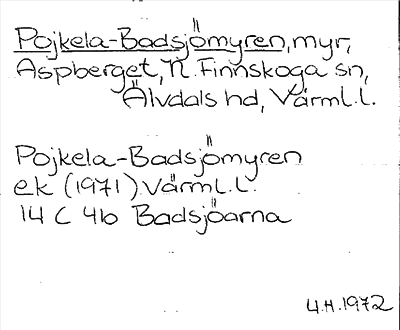 Pojkela-Badsjömyren, myr,
Aspberget, N. Finnskoga sn,
Älvdals hd, Värml.l.
Pojkela-Badsjömyren
ek (1971) Värml.l.
14 C 4b Badsjöarna
U.H. 1972